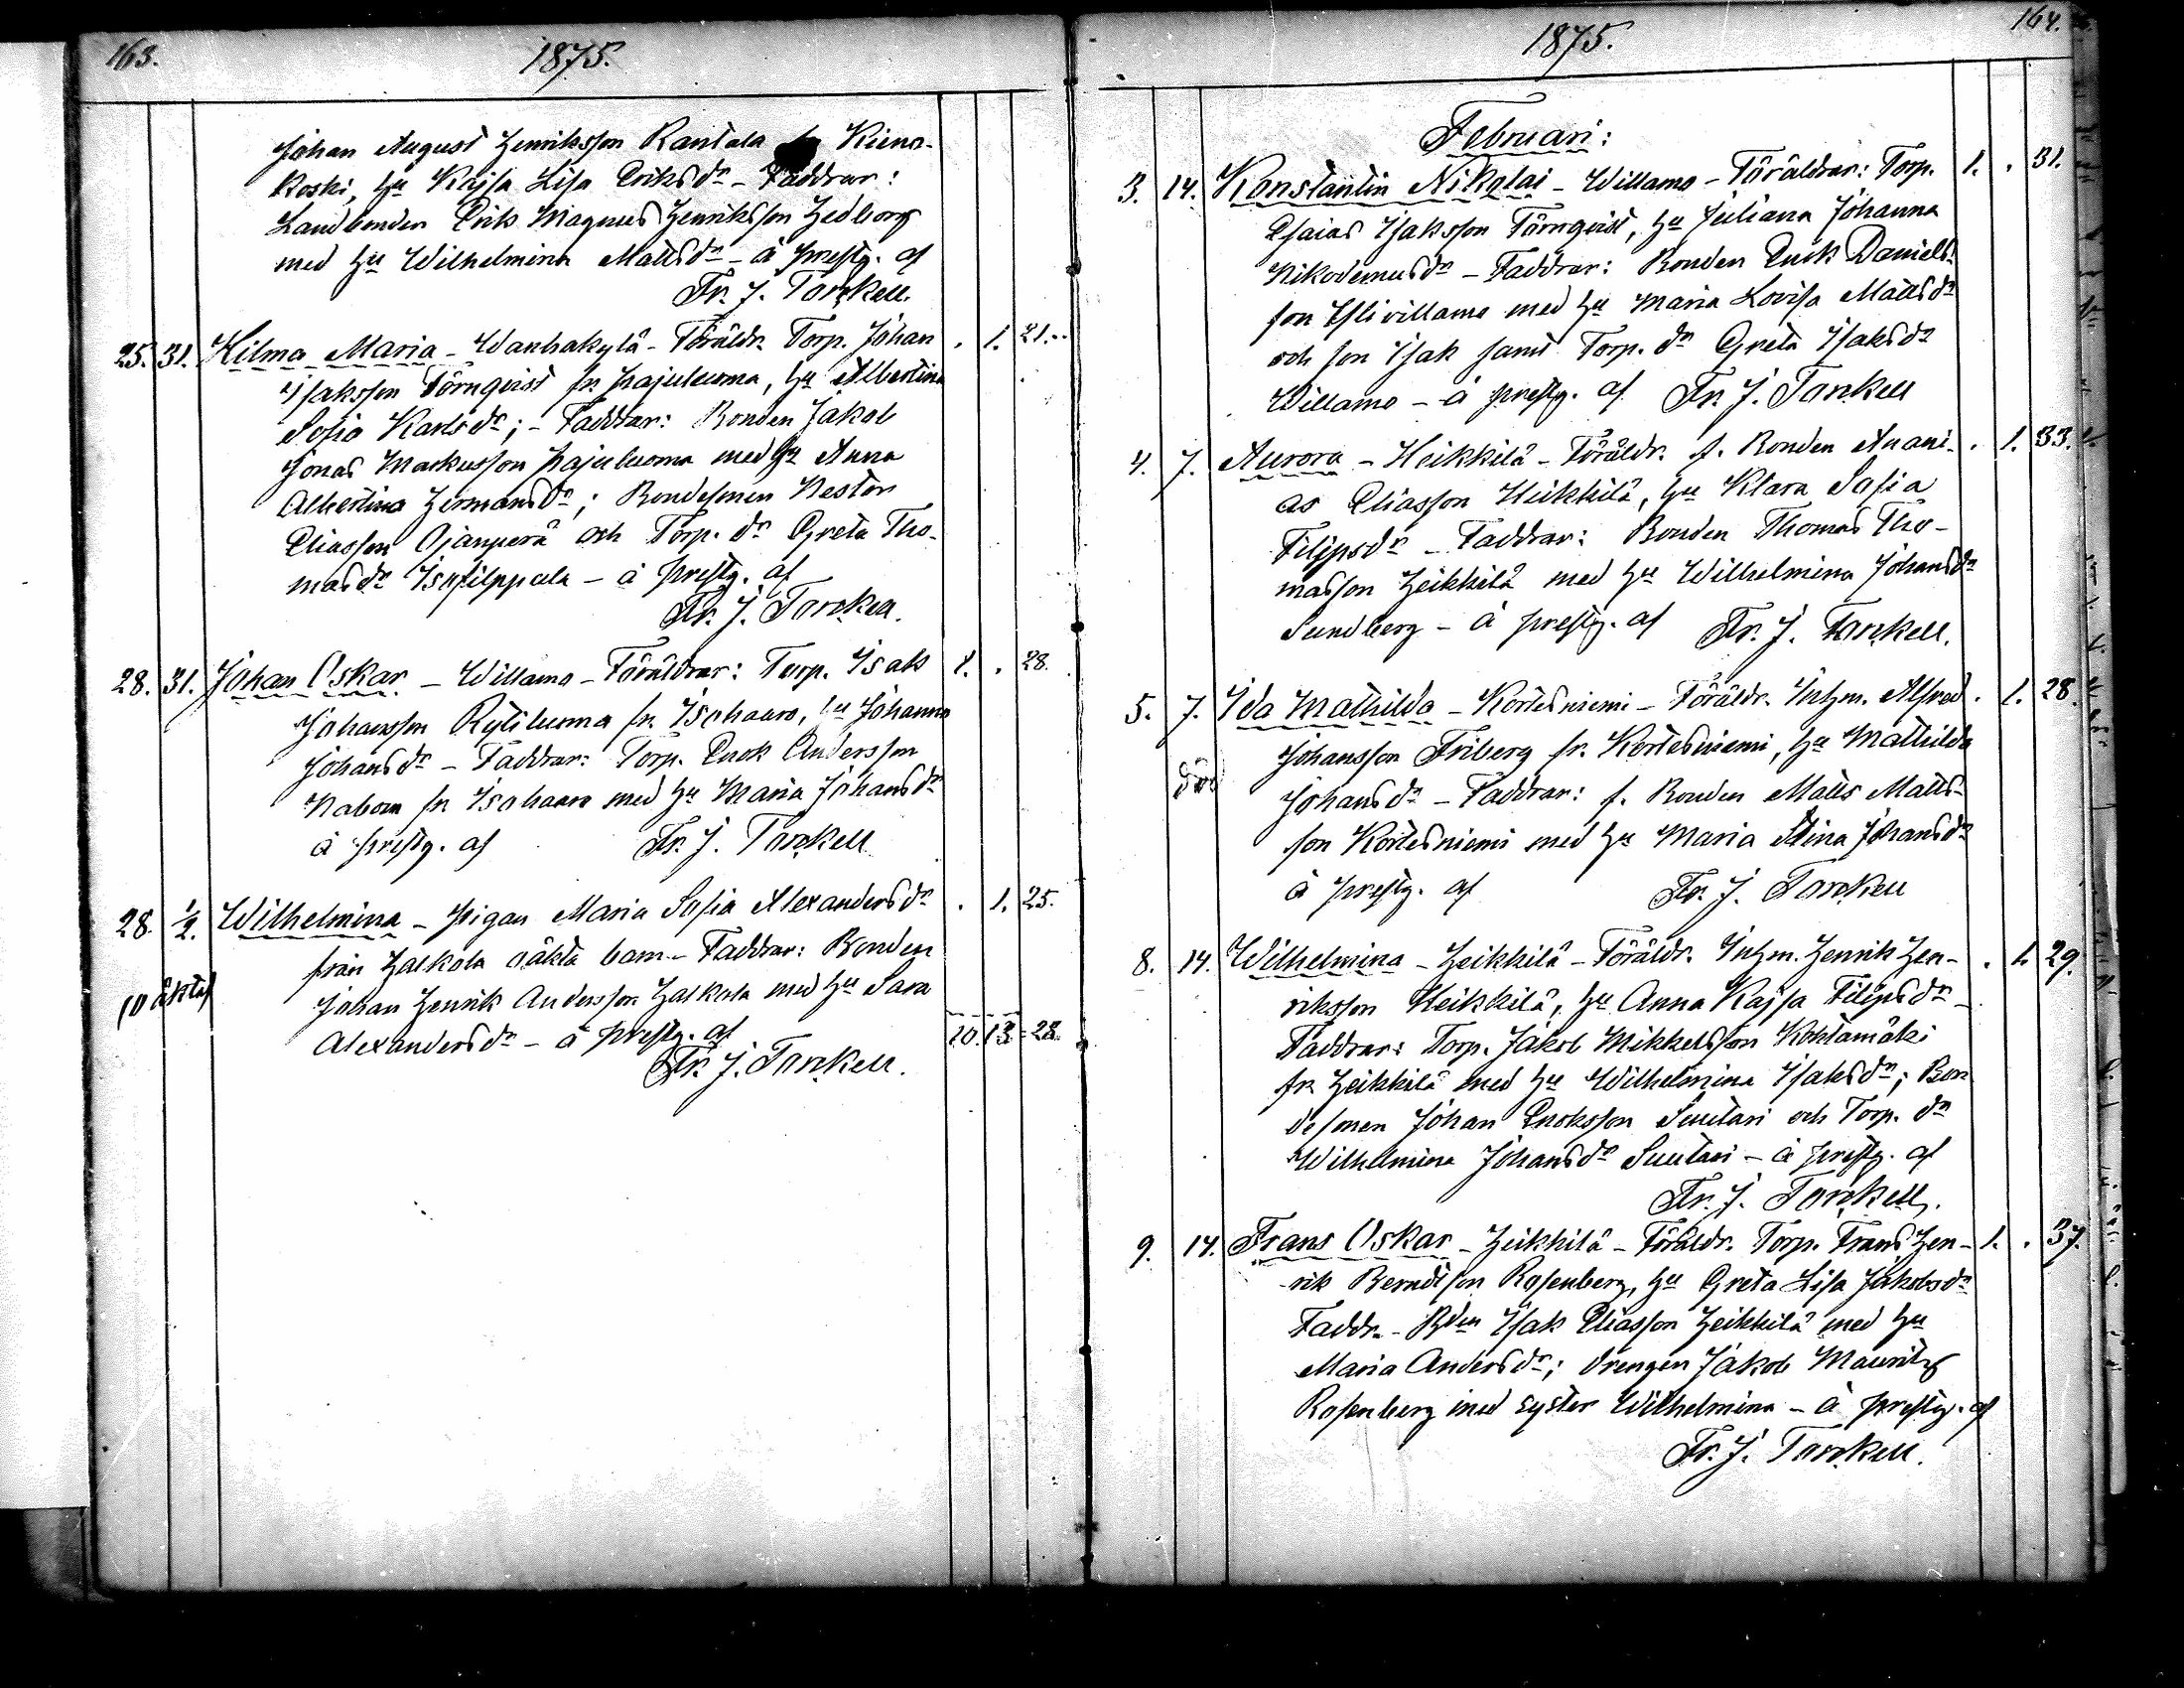 163.
1875.
Johan August Henriksson Rantala fr Kiina-
koski, hu Kajsa Lisa Eriksdr - Faddrar:
Landbonden Erik Magnus Henriksson Hedborg
med hu Wilhelmina Mattsdr - à prestg. af
Fr. J. Tarckell.
25. 31. Hilma Maria - Wanhakylä - Föräldr. Torp. Johan . 1. 21.
Isaksson Törnqvist fr. Pajuluoma, hu Albertina
Sofia Karlsdr; - Faddrar: Bonden Jakob
Jonas Markusson Pajuluoma med hu Anna
Albertina Hermansdr; Bondesonen Nestor
Eliasson Ojanperä och Torp. dr Greta Tho-
masdr Isofilppula - à prestg. af
Fr. J. Tarckell.
28. 31. Johan Oskar - Willamo - Föräldrar: Torp. Isak 1. . 28.
Johansson Rytiluoma fr. Isohaaro, hu Johanna
Johansdr - Faddrar: Torp. Enok Andersson
fr Isohaaro med hu Maria Johansdr
à prestg. af Fr. J. Tarckell
28. 1/2. Wilhelmina - pigan Maria Sofia Alexandersdr . 1. 25.
från Halkola oäkta barn - Faddrar: Bonden
(oäkta)
Johan Henrik Andersson Halkola med hu Sara
Alexandersdr - à prestg. af 10 13 = 28.
Fr. J. Tarckell.
1875.
164.
Februari:
3. 14. Konstantin Nikolai - Willamo - Föräldrar: Torp. 1. . 31.
Esaias Isaksson Törnqvist, hu Juliana Johanna
Nikodemusdr - Faddrar: Bonden Enok Daniels-
son Ylivillamo med hu Maria Lovisa Mattsdr
och son Isak samt Torp. dr Greta Isaksdr
Willamo - à prestg. af Fr. J. Tarckell
4. 7. Aurora - Heikkilä - Föräldr. f. Bonden Anani- . 1. 33.
as Eliasson Heikkilä, hu Klara Sofia
Filipsdr - Faddrar: Bonden Thomas Tho-
masson Heikkilä med hu Wilhelmina Johansdr
Sundberg - à prestg. af Fr. J. Tarckell.
5. 7. Ida Mathilda - Kortesniemi - Föräldr. Inhm. Alfred . 1. 28.
Johansson Friberg fr. Kortesniemi, hu Mathilda
död
Johansdr - Faddrar: f. Bonden Matts Matts-
son Kortesniemi med hu Maria Stina Johansdr
à prestg. af Fr. J. Tarckell
8. 14. Wilhelmina - Heikkilä - Föräldr. Inhm. Henrik Hen- . 1. 29.
riksson Heikkilä, hu Anna Kajsa Filipsdr -
Faddrar: Torp. Jakob Mikkelsson Kohtamäki
fr. Heikkilä med hu Wilhelmina Isaksdr; Bon
desonen Johan Enoksson Suutari och Torp. dr
Wilhelmina Johansdr Suutari - à prestg. af
Fr. J. Tarckell.
9. 14. Frans Oskar - Heikkilä - Föräldr. Torp. Frans Hen- 1. . 37.
rik Berndtson Rosenberg, hu Greta Lisa Jakobsdr
Faddr. - Bden Isak Eliasson Heikkilä med hu
Maria Andersdr; drengen Jakob Mauritz
Rosenberg med syster Wilhelmina - à prestg. af
Fr. J. Tarckell.